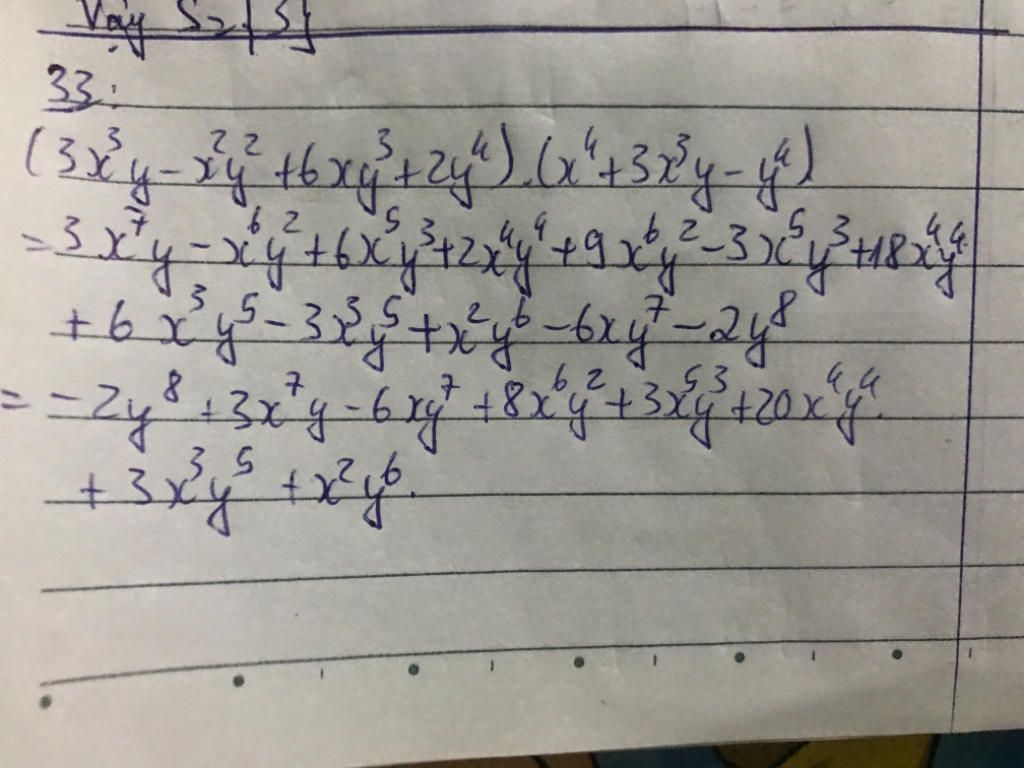 Vậy S = {3}
33:
(3x³y - x²y² + 6xy³ + 2y⁴).(x⁴ + 3x³y - y⁴)
= 3x⁷y - x⁶y² + 6x⁵y³ + 2x⁴y⁴ + 9x⁶y² - 3x⁵y³ + 18x⁴y⁴
+ 6x³y⁵ - 3x³y⁵ + x²y⁶ - 6xy⁷ - 2y⁸
= -2y⁸ + 3x⁷y - 6xy⁷ + 8x⁶y² + 3x⁵y³ + 20x⁴y⁴.
+ 3x³y⁵ + x²y⁶.